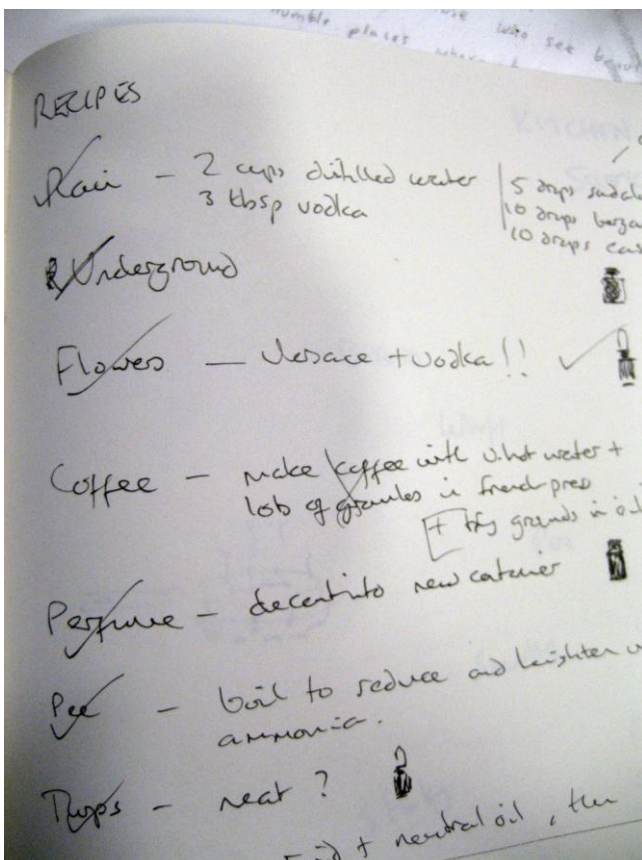 humble places
who see
RECIPES
KITCHEN
Rain - 2 cups distilled water
3 tbsp vodka
5 drops
10 drops
10 drops
Underground
Flowers - Versace + vodka!!
Coffee - make koffee with v.hot water +
lots of granules in french press
+ try grounds in oil
Perfume - decent into new container
Pee - boil to reduce and heighten
ammonia.
- neat?
+ neutral oil, then